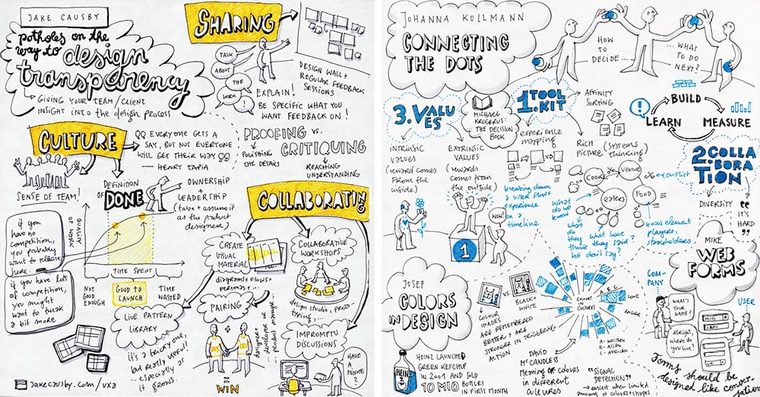 JAKE CAUSBY
potholes on the
way to design
transparency
GIVING YOUR TEAM/CLIENT
INSIGHT INTO the design process
SHARING
TALK
ABOUT
THE
WORK
EXPLAIN!
BE SPECIFIC WHAT YOU
WANT FEEDBACK ON!
DESIGN WALL +
REGULAR FEEDBACK
SESSIONS
CULTURE
SENSE OF TEAM!
EVERYONE GETS A
SAY, BUT NOT EVERYONE
WILL GET THEIR WAY
HENRY TAPIA
PROOFING VS.
CRITIQUING
POLISHING
THE DETAILS
REACHING
UNDERSTANDING
DEFINITION
OF
DONE
OWNERSHIP
LEADERSHIP
(take + assume it
as the product
designer)
if you
have no
competition,
you probably
want to release
here
if you have lots
of competition,
you might
want to tweak
a bit more
QUALITY
OF WORK
TIME SPENT
NOT
GOOD
ENOUGH
GOOD TO
LAUNCH
TIME
WASTED
LIVE PATTERN
LIBRARY
it's a tricky one
but really useful!
especially as
it grows
jakecausby.com/ux2
COLLABORATING
CREATE
VISUAL
MATERIAL
diagrams, flows,
personas
PAIRING
WIN
developer or
product manager
COLLABORATIVE
WORKSHOPS
design studio, proto-
typing
IMPROMPTU
DISCUSSIONS
HAVE
A
MINUTE?
JOHANNA KOLLMANN
CONNECTING
THE DOTS
HOW
TO
DECIDE...
...WHAT
TO DO
NEXT?
3. VALUES
INTRINSIC
VALUES
(reward comes
from the
inside)
EXTRINSIC
VALUES
(rewards
comes from
the outside)
NOW!
1
MICHAEL
KROGERUS
THE DECISION
BOOK
1. TOOL
KIT
experience
mapping
breaking down
a user's
experience
on a
timeline
AFFINITY
SORTING
RICH
PICTURE
(SYSTEMS
thinking)
COOK
VENUE
FOOD
conflict
what
do
they
do?
what have
they said
didn't
say?
BUILD
LEARN
MEASURE
2 COLLA
BORA
TION
DIVERSITY
IT'S
HARD
JOSEF
COLORS
IN DESIGN
COLOUR
IMAGES
ARE REMEMBERED
BETTER + ARE
STRONGER IN TRIGGERING
ACTION
VS.
BLACK+
WHITE
HEINZ LAUNCHED
GREEN KETCHUP
IN 2001 AND SOLD
10 MIO BOTTLES
IN FIRST MONTH
DAVID
McCANDLESS
Meaning of colours
in different
cultures
SIGNAL
DETECTION
MIKE
WEB
FORMS
COM-
PANY
USER
WHAT'S
YOUR
NAME?
Alright,
where do
you live?
Forms should be
designed like conver-
sations